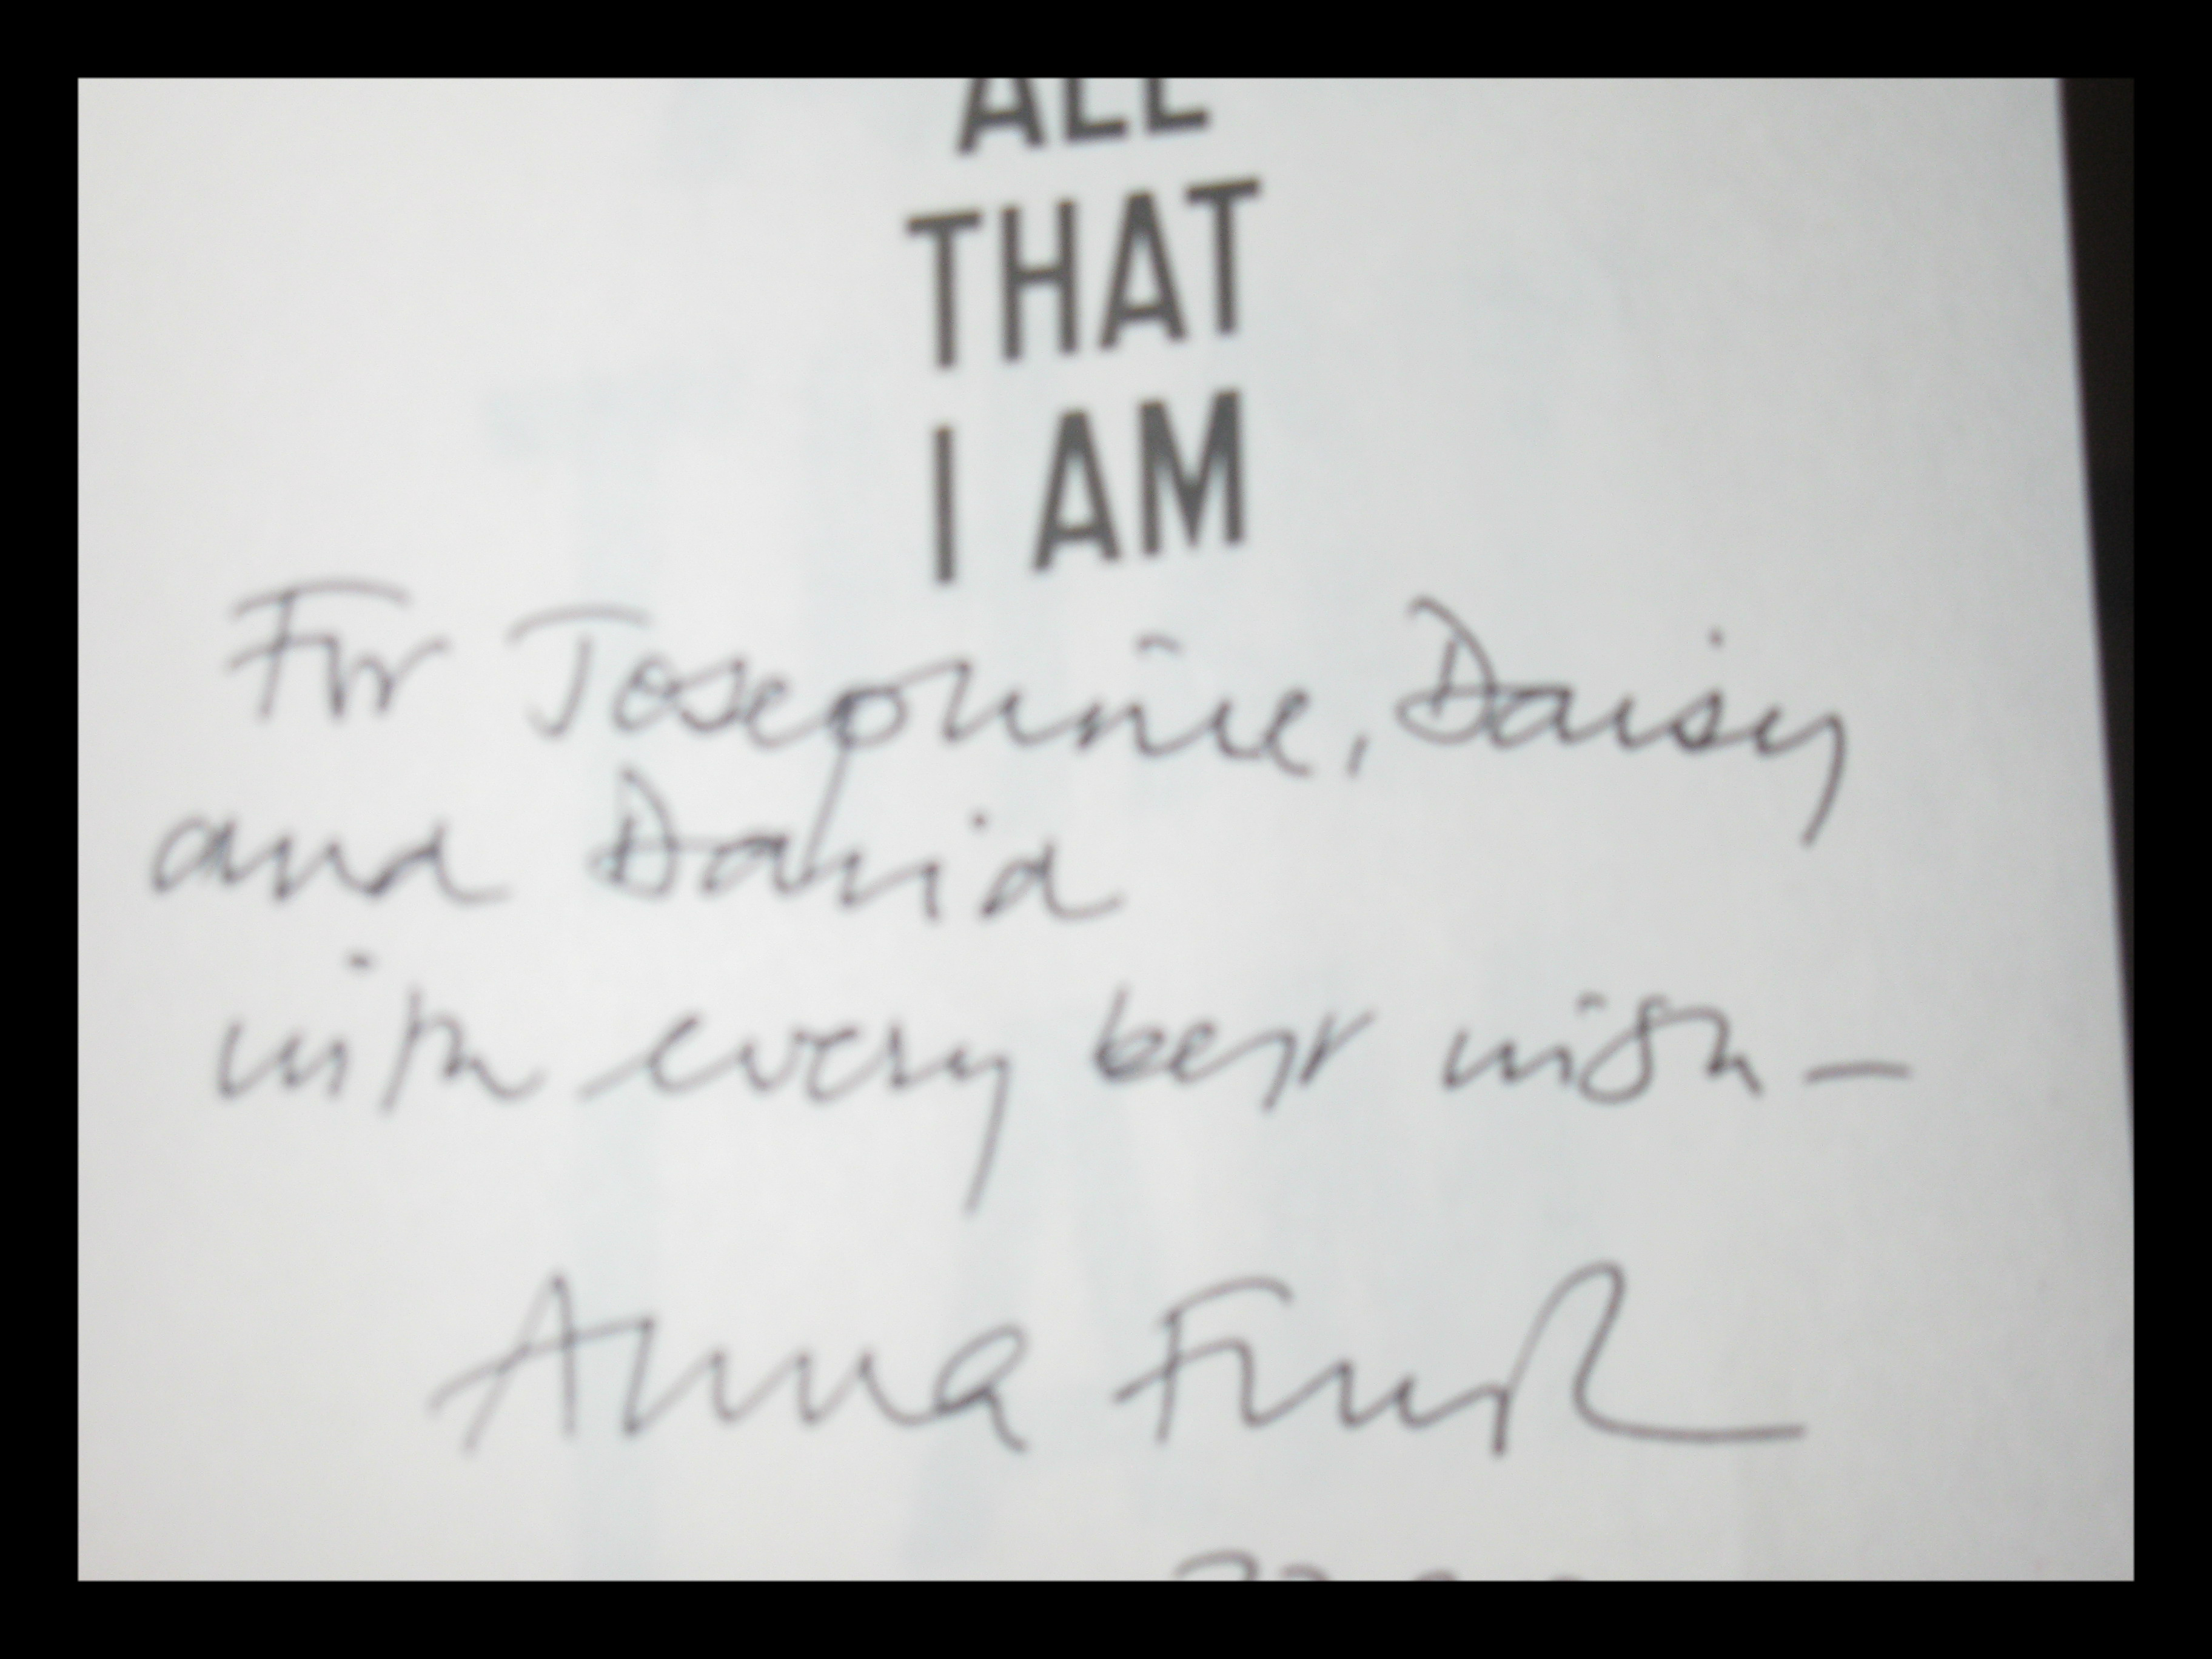 ALL
THAT
I AM
For Josephine, Daisy
and David
with every best wish —
Anna Funder